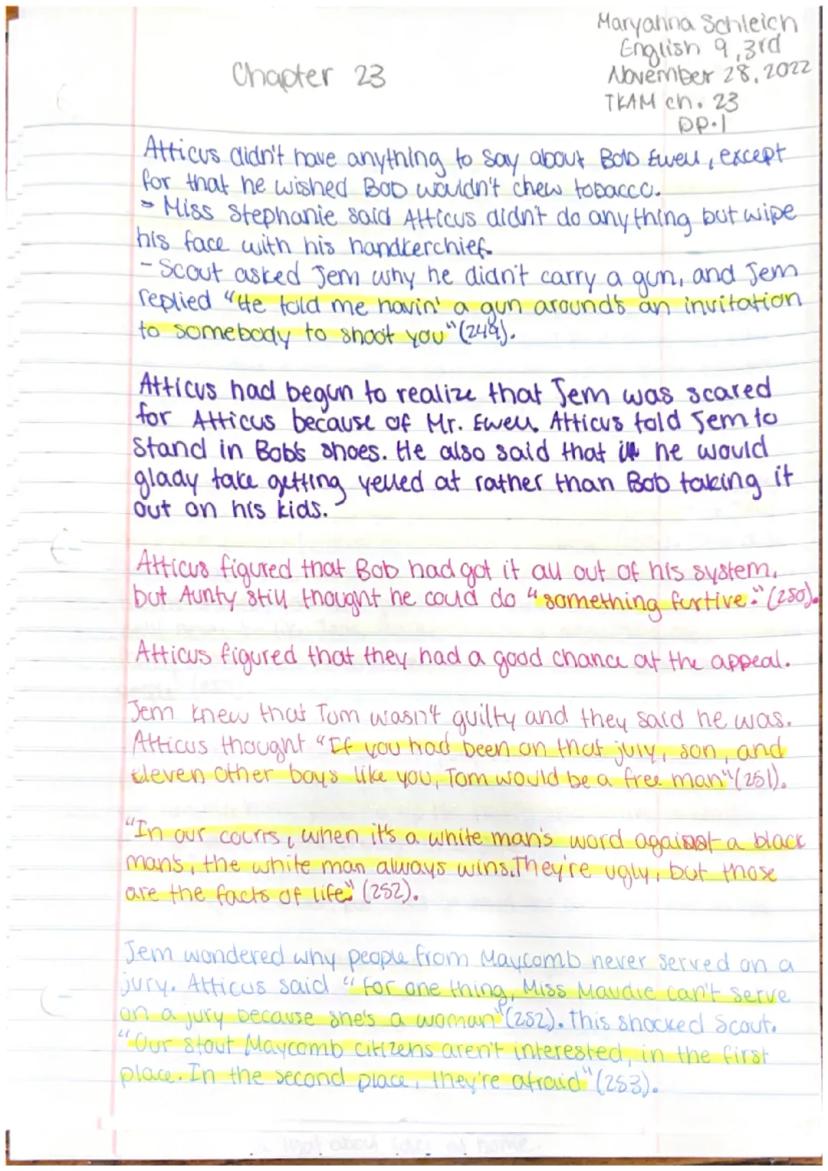 Maryanna Schleich
English 9, 3rd
November 28, 2022
TKAM ch. 23
pp. 1
Chapter 23
Atticus didn't have anything to say about Bob Ewell, except
for that he wished Bob wouldn't chew tobacco.
- Miss Stephanie said Atticus didn't do anything but wipe
his face with his handkerchief.
- Scout asked Jem why he didn't carry a gun, and Jem
replied "He told me havin' a gun around's an invitation
to somebody to shoot you" (249).
Atticus had begun to realize that Jem was scared
for Atticus because of Mr. Ewell. Atticus told Jem to
stand in Bob's shoes. He also said that he would
glady take getting yelled at rather than Bob taking it
out on his kids.
Atticus figured that Bob had got it all out of his system,
but Aunty still thought he could do "something furtive." (250).
Atticus figured that they had a good chance at the appeal.
Jem knew that Tom wasn't guilty and they said he was.
Atticus thought "If you had been on that jury, son, and
eleven other boys like you, Tom would be a free man" (251).
"In our courts, when it's a white man's word against a black
man's, the white man always wins. They're ugly, but those
are the facts of life" (252).
Jem wondered why people from Maycomb never served on a
jury. Atticus said "For one thing, Miss Maudie can't serve
on a jury because she's a woman" (252). This shocked Scout.
"Our stout Maycomb citizens aren't interested, in the first
place. In the second place, they're afraid" (253).